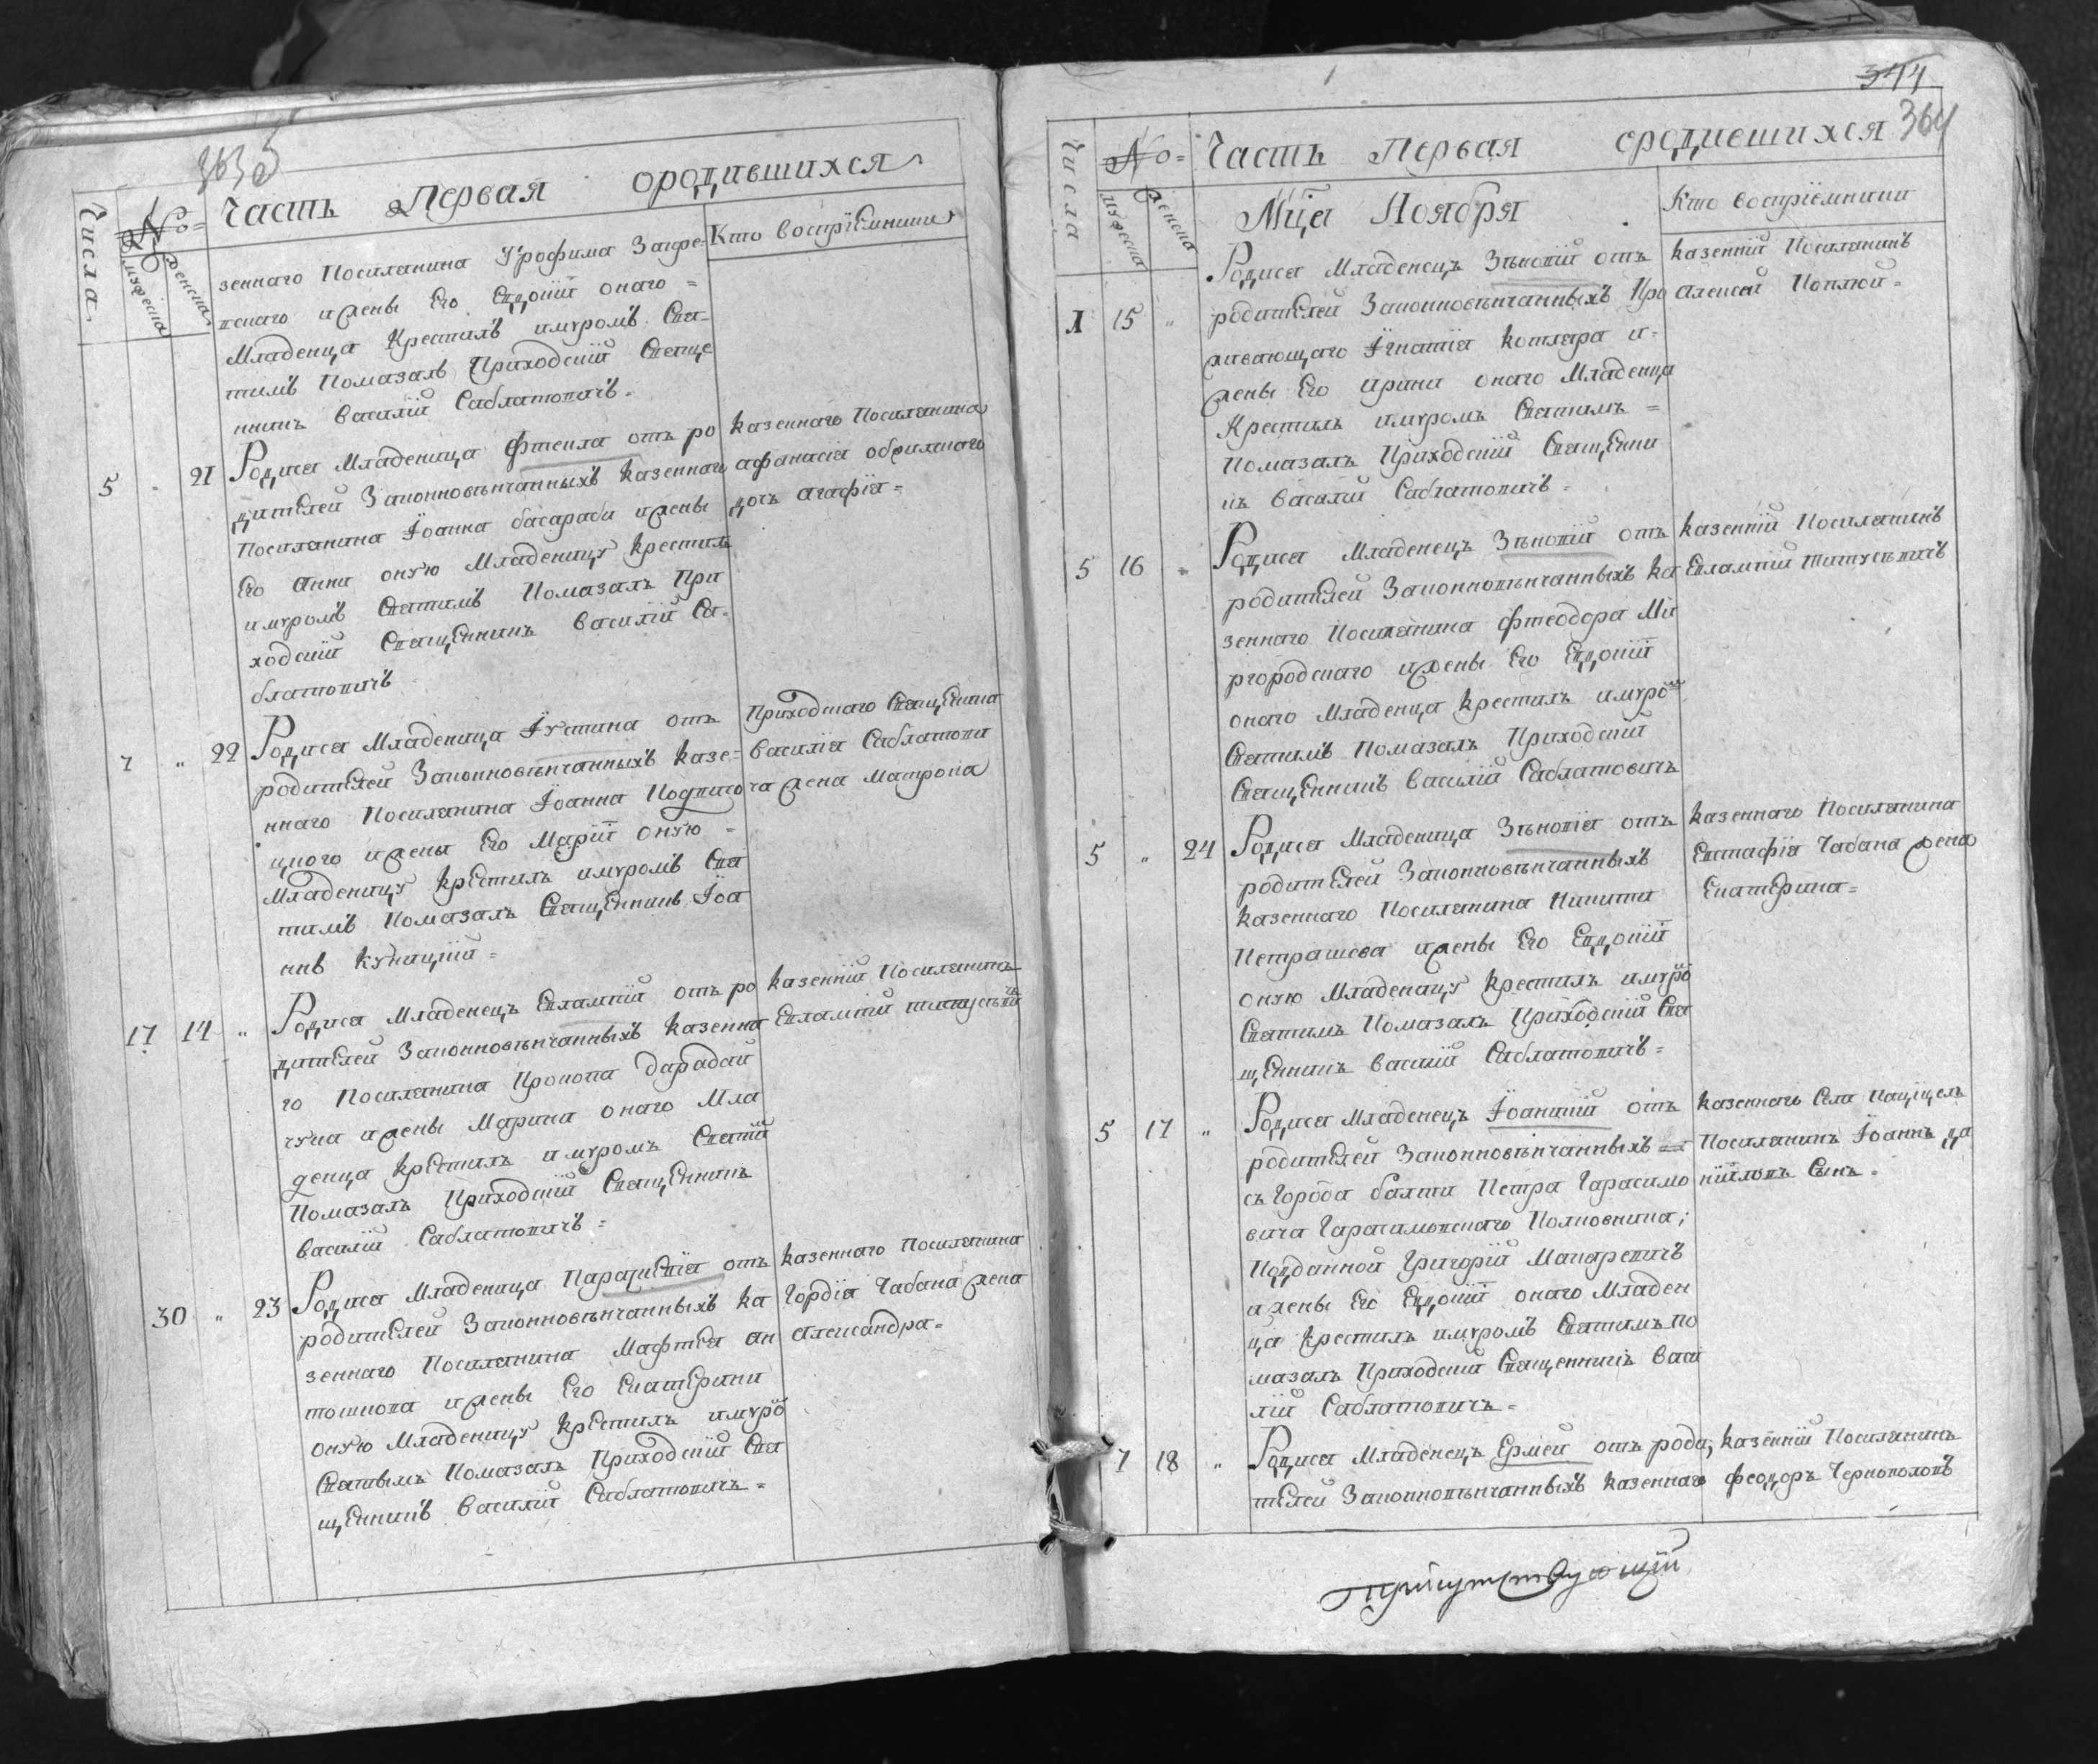 3635
Числа
No=
мужеска
женска
Часть Первая ородившихся
Кто восприемники
зеннаго Посилянина Трофима Загре-
вскаго и жены Его Евдокіи онаго =
Младенца Крестилъ имуромъ Свя-
тимъ Помазалъ Приходскій Свяще
нникъ Василій Саблатовичъ.
5 21
Родися Младеница Фтекла отъ ро
дителей Законновѣнчанныхъ Казеннаго
Посилянина Іоанна басараби ижены
Его Анни оную Младеницу Крестилъ
имуромъ Святимъ Помазалъ При
ходскій Священникъ Василій Са-
блатовичъ
Казеннаго Посилянина
афанасія
дочъ агафія=
7 " 22
Родися Младеница Іустина отъ
родителей Законновѣнчанныхъ Казе=
ннаго Посилянина Іоанна
цкого ижены Его Маріи оную =
Младеницу Крестилъ имуромъ Свя
тимъ Помазалъ Священникъ Іоа
ннъ Куницкій =
Приходскаго Священника
Василія Саблатови
ча жена Матрона
17 14 "
Родися Младенецъ Евлампій отъ ро
дителей Законновѣнчанныхъ Казенна
го Посилянина Прокопа Дарадай
чука ижены Марина онаго Мла
денца Крестилъ имуромъ Святи
Помазалъ Приходскій Священникъ
Василій Саблатовичъ =
Казенній Посилянинъ
Евлампій
30 " 23
Родися Младеница Параскевія отъ
родителей Законновѣнчанныхъ Ка
зеннаго Посилянина Мафтея Ан
тошкова ижены Его Екатерини
оную Младеницу Крестилъ имуро
Святымъ Помазалъ Приходскій Свя
щенникъ Василій Саблатовичъ =
Казеннаго Посилянина
Гордія Чабана жена
Александра=
344
364
Числа
No=
мужеска
женска
Часть Первая ородившихся
Мца Ноября
Кто восприемники
1 15 "
Родися Младенецъ Зѣновій отъ
родителей Законновѣнчанныхъ Про
живающаго Ігнатія Котляра и=
жены Его Ирини онаго Младенца
Крестилъ имуромъ Святимъ =
Помазалъ Приходскій Священни
къ Василій Саблатовичъ =
Казенній Посилянинъ
Алексей
5 16 =
Родися Младенецъ Зѣновій отъ
родителей Законновѣнчанныхъ Ка
зеннаго Посилянина Фтеодора Ми
ргородскаго ижены Его Евдокіи
онаго Младенца Крестилъ имуро
Святимъ Помазалъ Приходскій
Священникъ Василій Саблатовичъ
Казенній Посилянинъ
Евлампій
5 " 24
Родися Младеница Зѣновія отъ
родителей Законновѣнчанныхъ
Казеннаго Посилянина Никити
Петрашева ижены Его Евдокіи
оную Младеницу Крестилъ имуро
Святимъ Помазалъ Приходскій Свя
щенникъ Василій Саблатовичъ =
Казеннаго Посилянина
Евстафія Чабана жена
Екатерина=
5 17 "
Родися Младенецъ Іоанікій отъ
родителей Законновѣнчанныхъ
съ Города Балти Петра Гарасимо
вича Гарасимовскаго Полковника;
Подданной Григорій Макаревичъ
ижены Его Евдокіи онаго Младен
ца Крестилъ имуромъ Святимъ По
мазалъ Приходскій Священникъ Васи
лій Саблатовичъ =
Казеннаго Села
Посилянинъ Іоаннъ Да
ніиловъ Сынъ =
7 18 "
Родися Младенецъ Ермей отъ роди,
телей Законновѣнчанныхъ Казеннаго
Казенній Посилянинъ
Феодоръ Чернополовъ
Присутствующій